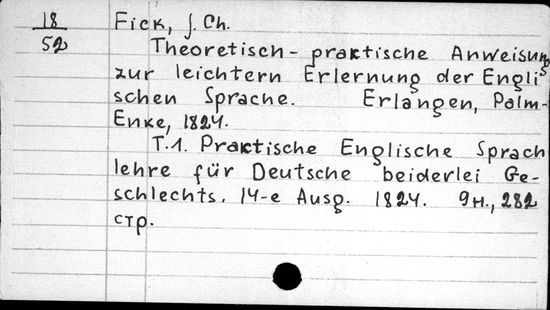 18
52
Fick, J. Ch.
Theoretisch-praktische Anweisung
zur leichtern Erlernung der Engli
schen Sprache. Erlangen, Palm-
Enke, 1824.
T.1. Praktische Englische Sprach
lehre für Deutsche beiderlei Ge-
schlechts. 14-e Ausg. 1824. 9н., 282
стр.